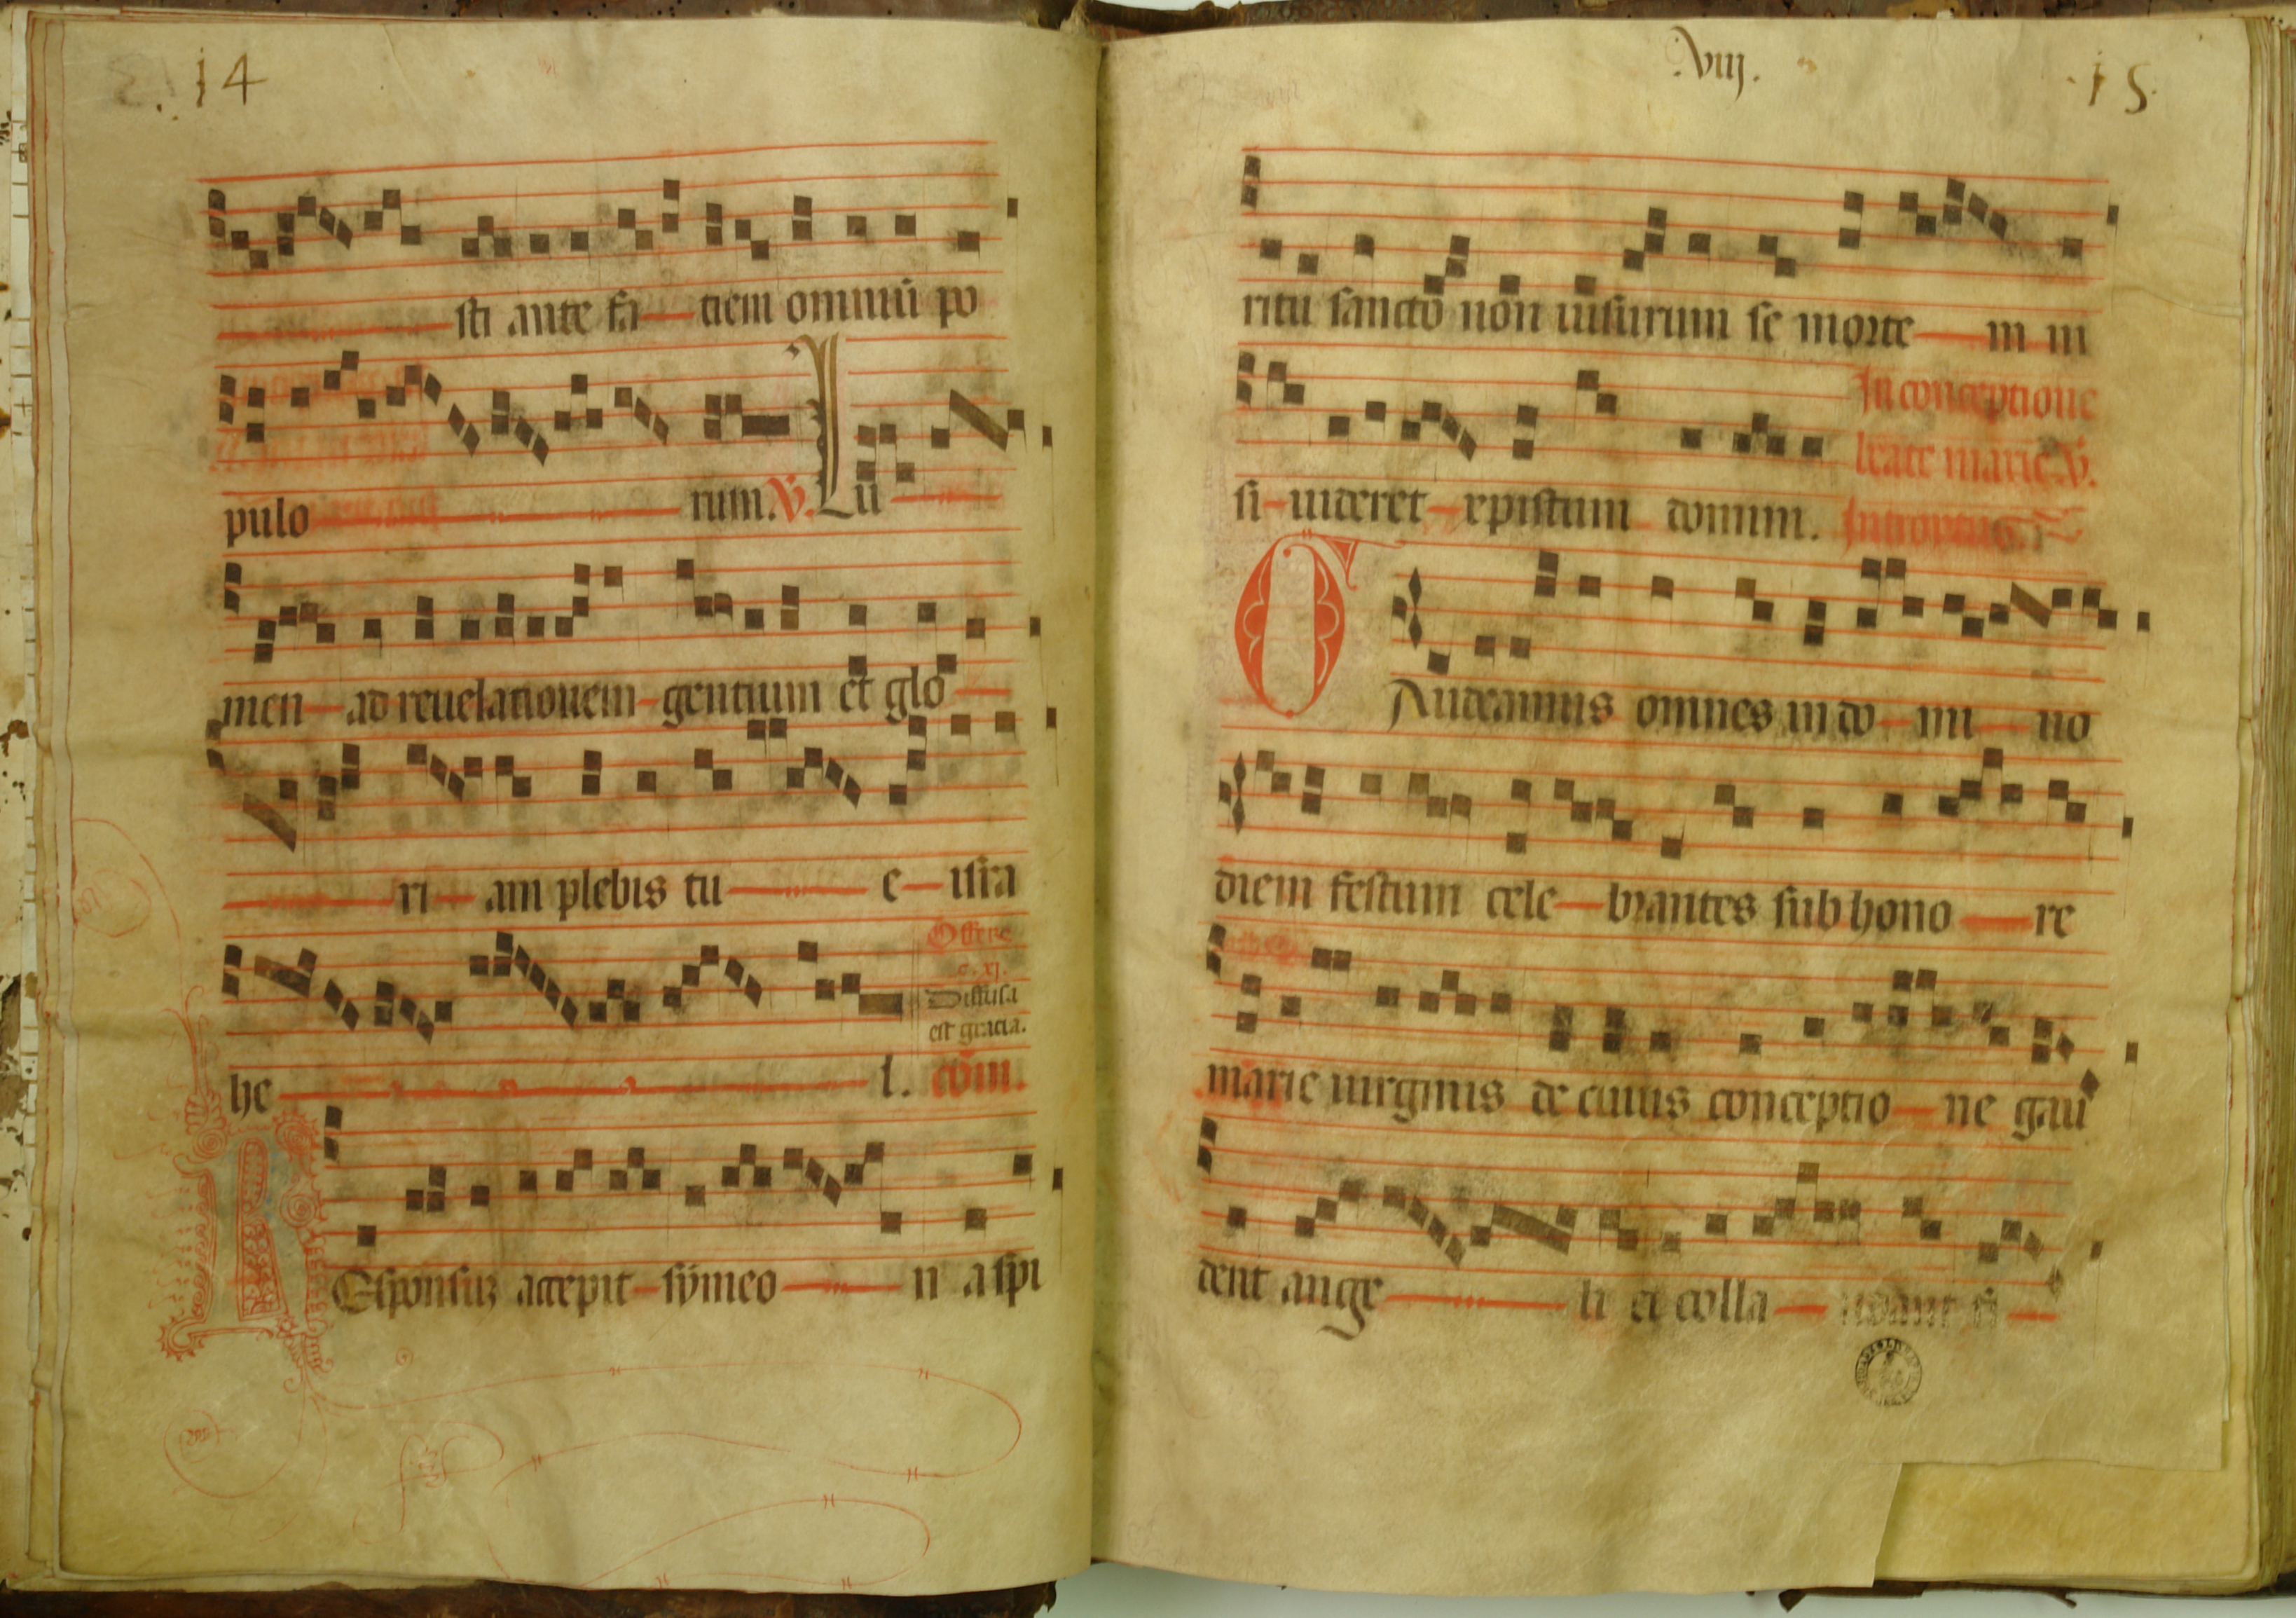 14
sti ante fa tiem omniū po
pulo rum. V. Lu
men ad reuelationem gentium et glo
ri am plebis tu e isra
Offere
c. xj.
Diffusa
est gracia.
he l. cōm.
REsponsuz accepit symeo n a spi
.viij.
15
ritu sancto non uisurum se morte m ni
In conceptione
beate marie V.
si uideret xpistum domini. Introytus.
GAudeamus omnes in do mi no
diem festum cele brantes sub hono re
marie uirginis de cuius conceptio ne gau
dent ange li et colla udant fi